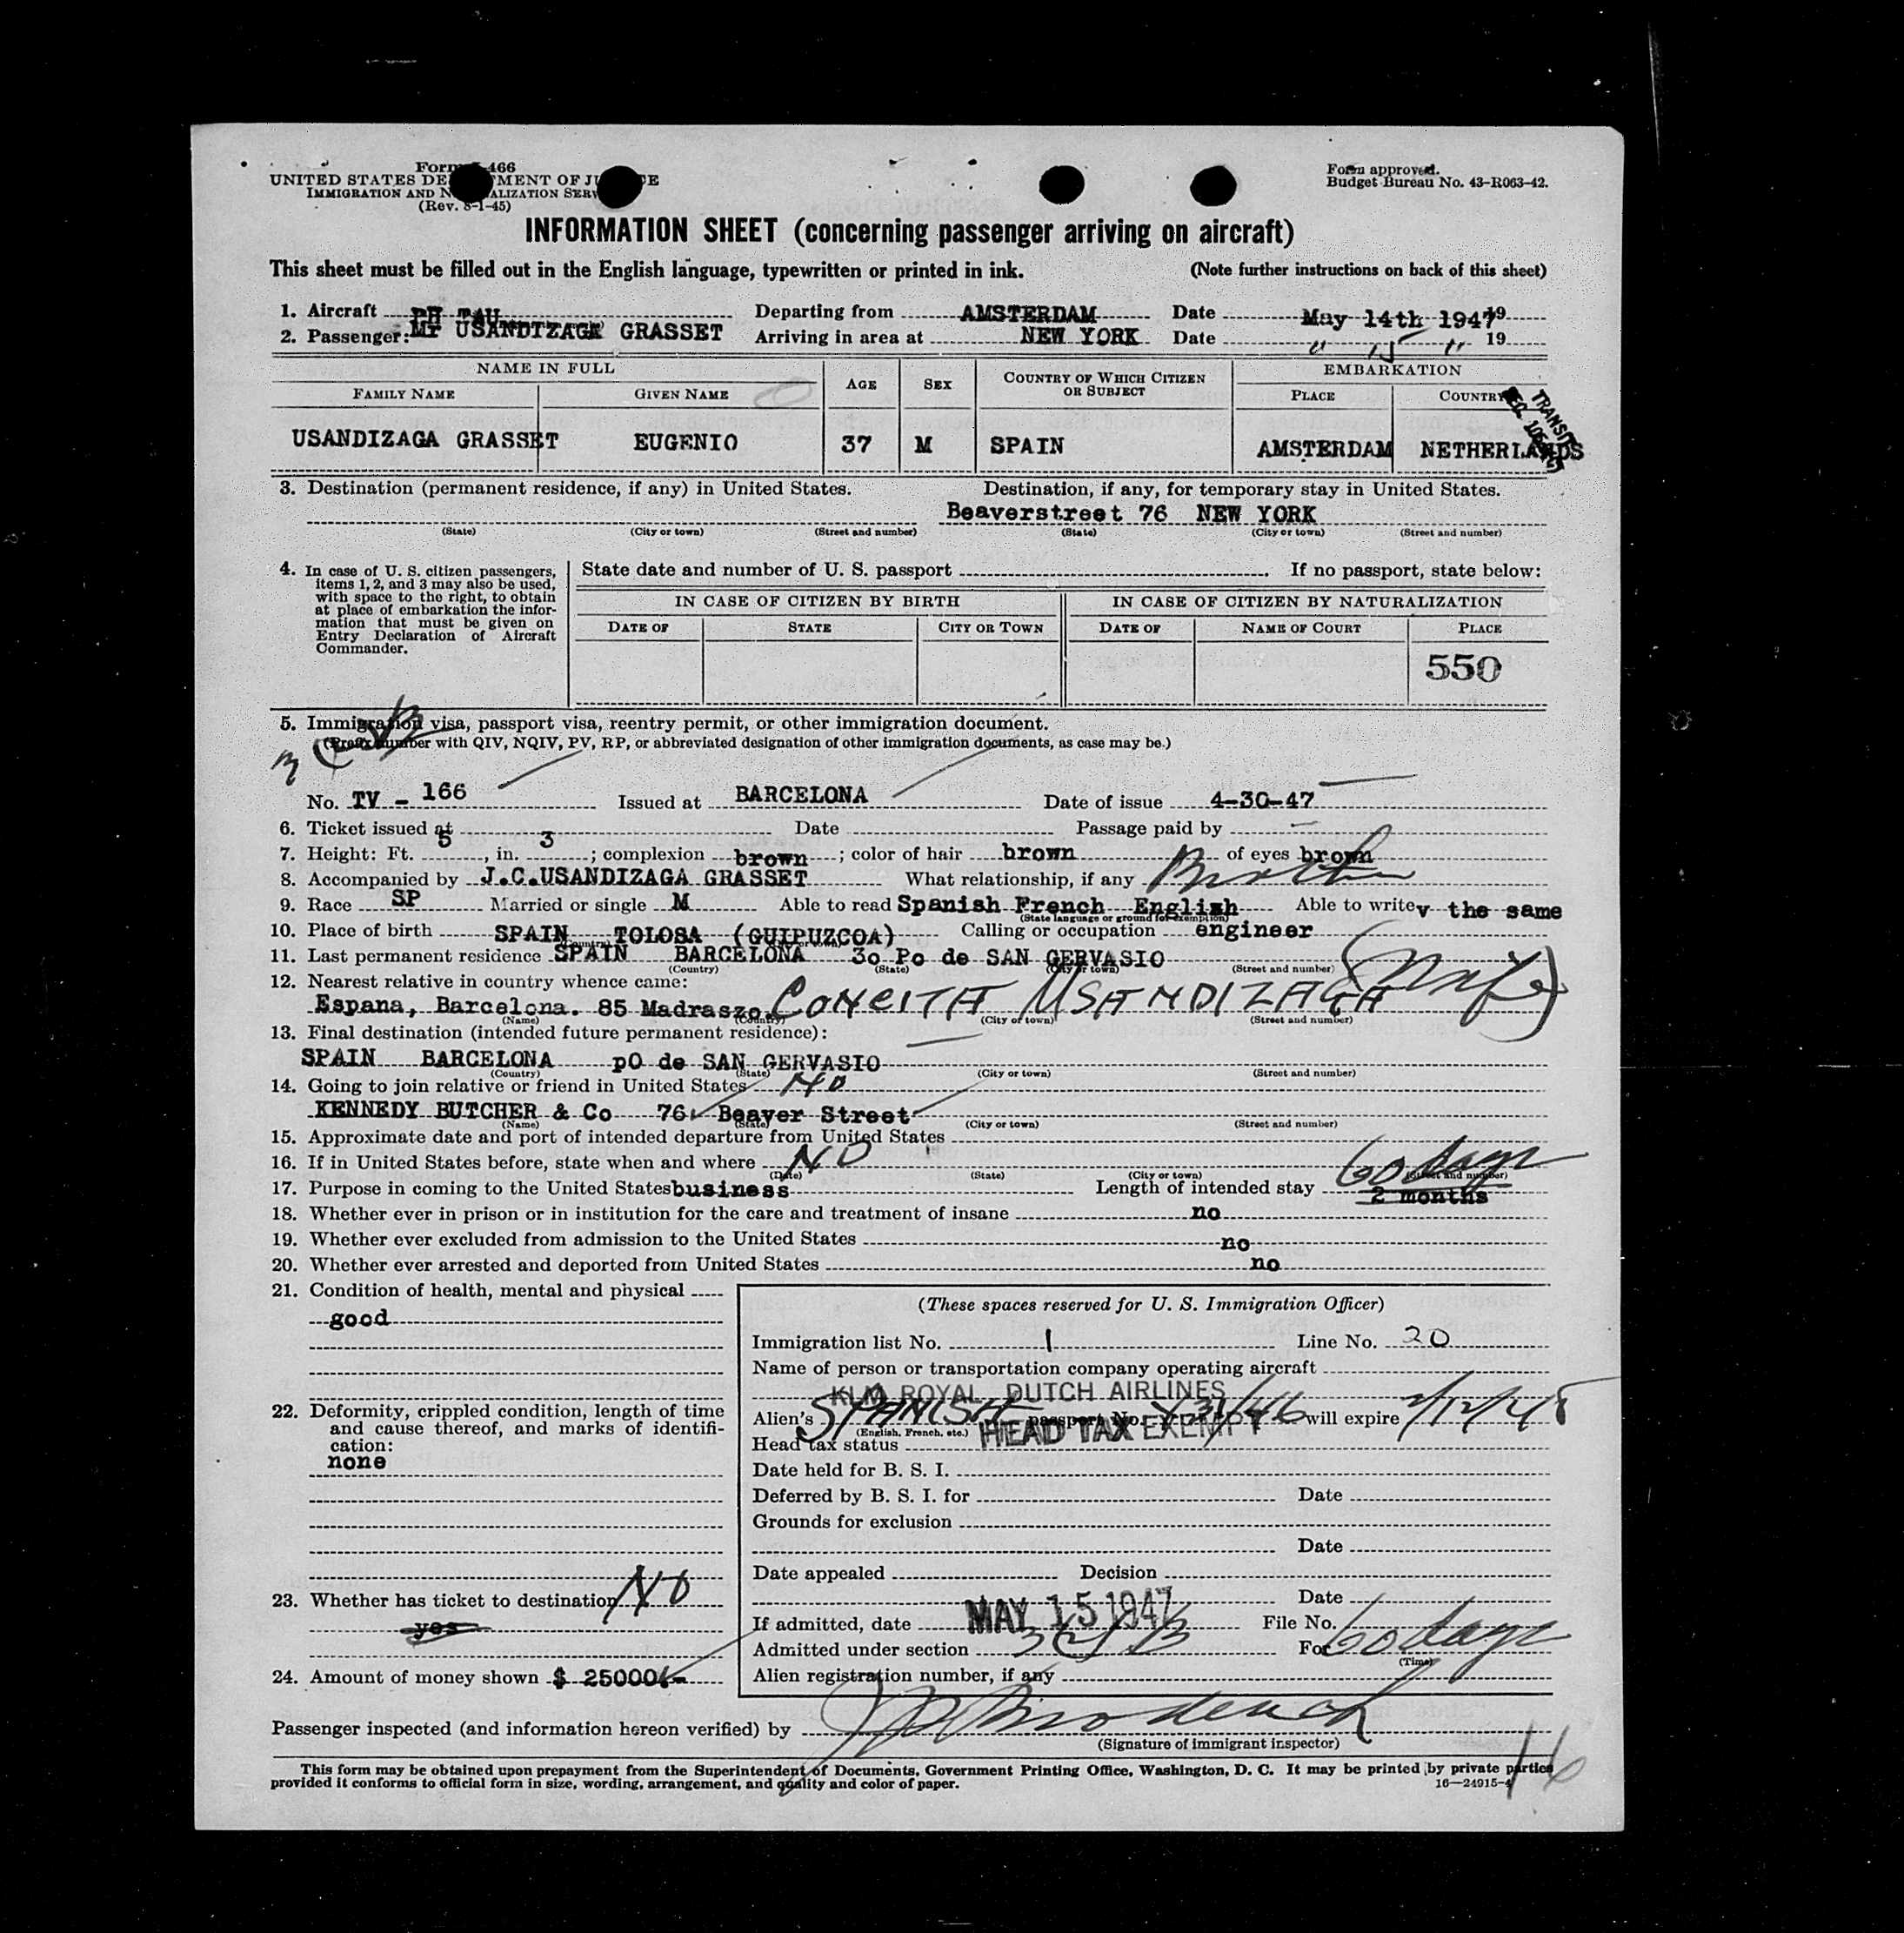 Form 466
UNITED STATES DE MENT OF JU E
IMMIGRATION AND N ALIZATION SERV
(Rev. 8-1-45)
Form approved.
Budget Bureau No. 43-R063-42.
INFORMATION SHEET (concerning passenger arriving on aircraft)
This sheet must be filled out in the English language, typewritten or printed in ink. (Note further instructions on back of this sheet)
1. Aircraft PH TAU Departing from AMSTERDAM Date May 14th 1947 19
2. Passenger: Mr USANDIZAGA GRASSET Arriving in area at NEW YORK Date " 15 " 19
NAME IN FULL AGE SEX COUNTRY OF WHICH CITIZEN OR SUBJECT EMBARKATION
FAMILY NAME GIVEN NAME PLACE COUNTRY
TRANSIT
USANDIZAGA GRASSET EUGENIO 37 M SPAIN AMSTERDAM NETHERLANDS
3. Destination (permanent residence, if any) in United States. Destination, if any, for temporary stay in United States.
Beaverstreet 76 NEW YORK
(State) (City or town) (Street and number) (State) (City or town) (Street and number)
4. In case of U. S. citizen passengers, items 1, 2, and 3 may also be used, with space to the right, to obtain at place of embarkation the information that must be given on Entry Declaration of Aircraft Commander.
State date and number of U. S. passport If no passport, state below:
IN CASE OF CITIZEN BY BIRTH IN CASE OF CITIZEN BY NATURALIZATION
DATE OF STATE CITY OR TOWN DATE OF NAME OF COURT PLACE
550
5. Immigration visa, passport visa, reentry permit, or other immigration document.
(Prefix number with QIV, NQIV, PV, RP, or abbreviated designation of other immigration documents, as case may be.)
No. TV - 166 Issued at BARCELONA Date of issue 4-30-47
6. Ticket issued at Date Passage paid by
7. Height: Ft. 5, in. 3; complexion brown; color of hair brown of eyes brown
8. Accompanied by J.C.USANDIZAGA GRASSET What relationship, if any Brother
9. Race SP Married or single M Able to read Spanish French English Able to write v the same
(State language or ground for exemption)
10. Place of birth SPAIN TOLOSA (GUIPUZCOA) Calling or occupation engineer
11. Last permanent residence SPAIN BARCELONA 3o Po de SAN GERVASIO
(Country) (State) (City or town) (Street and number)
12. Nearest relative in country whence came: (Wife)
Espana, Barcelona. 85 Madraszo CONCITA USANDIZAGA
(Name) (Country) (City or town) (Street and number)
13. Final destination (intended future permanent residence):
SPAIN BARCELONA pO de SAN GERVASIO
(Country) (State) (City or town) (Street and number)
14. Going to join relative or friend in United States NO
KENNEDY BUTCHER & Co 76 Beaver Street
(Name) (State) (City or town) (Street and number)
15. Approximate date and port of intended departure from United States
16. If in United States before, state when and where NO 60 days
(Date) (State) (City or town) (Street and number)
17. Purpose in coming to the United States business Length of intended stay 2 months
18. Whether ever in prison or in institution for the care and treatment of insane no
19. Whether ever excluded from admission to the United States no
20. Whether ever arrested and deported from United States no
21. Condition of health, mental and physical
good
22. Deformity, crippled condition, length of time and cause thereof, and marks of identification:
none
23. Whether has ticket to destination NO
yes
24. Amount of money shown $ 25000/-
(These spaces reserved for U. S. Immigration Officer)
Immigration list No. 1 Line No. 20
Name of person or transportation company operating aircraft
KLM ROYAL DUTCH AIRLINES
Alien's SPANISH passport No. will expire
(English, French, etc.)
Head tax status HEAD TAX EXEMPT
Date held for B. S. I.
Deferred by B. S. I. for Date
Grounds for exclusion
Date
Date appealed Decision
Date
If admitted, date MAY 15 1947 File No.
Admitted under section 3(2)B For 60 days
(Time)
Alien registration number, if any
Passenger inspected (and information hereon verified) by
(Signature of immigrant inspector)
This form may be obtained upon prepayment from the Superintendent of Documents, Government Printing Office, Washington, D. C. It may be printed by private parties
provided it conforms to official form in size, wording, arrangement, and quality and color of paper. 16—24915-4
16